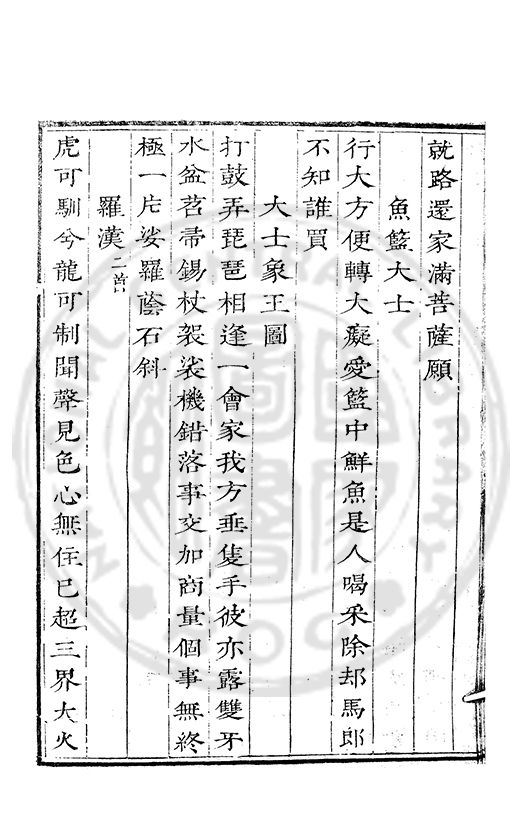 就路還家滿菩薩願
魚籃大士
行大方便轉大癡愛籃中鮮魚是人喝采除却馬郎
不知誰買
大士象王圖
打鼓弄琵琶相逢一會家我方垂隻手彼亦露雙牙
水盆苕帚錫杖袈裟機鉛落事交加商量個事無終
極一片娑羅蔭石斜
羅漢二首
虎可馴兮龍可制聞聲見色心無住已超三界大火